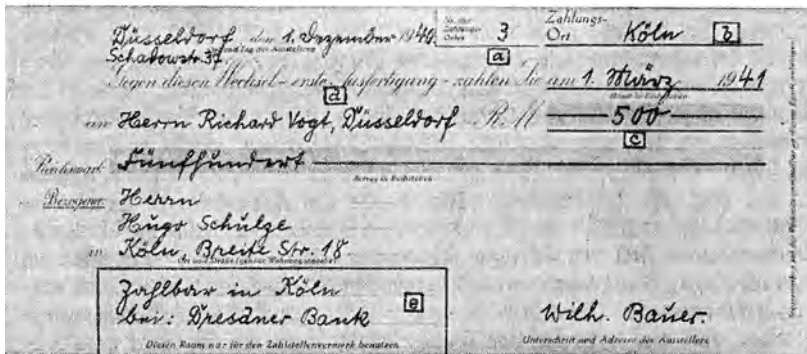 Düsseldorf, den 1. Dezember 1940
Nr. des Zahlungs-Ortes 3
Zahlungs-Ort Köln b
Schadowstr. 37
Ort und Tag der Ausstellung
a
Gegen diesen Wechsel - erste Ausfertigung - zahlen Sie am 1. März 1941
d
Monat in Buchstaben
an Herrn Richard Vogt, Düsseldorf RM 500
c
Reichsmark Fünfhundert
Betrag in Buchstaben
Bezogener Herrn
Hugo Schulze
in Köln, Breite Str. 18
Ort und Straße (genaue Wohnungsangabe)
Zahlbar in Köln
e
bei: Dresdner Bank
Wilh. Bauer.
Diesen Raum nur für den Zahlstellenvermerk benutzen
Unterschrift und Adresse des Ausstellers